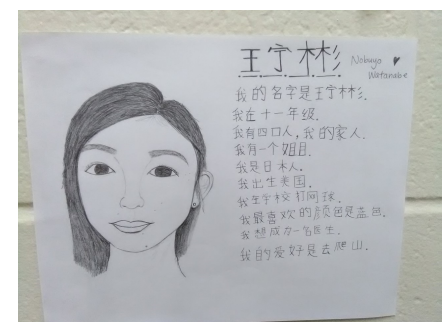 王宁彬彬
Nobuyo Watanabe
我的名字是王宁彬彬.
我在十一年级.
我有四口人, 我的家人.
我有一个姐姐.
我是日本人.
我出生美国.
我在学校打网球.
我最喜欢的颜色是蓝色.
我想成为一名医生.
我的爱好是去爬山.